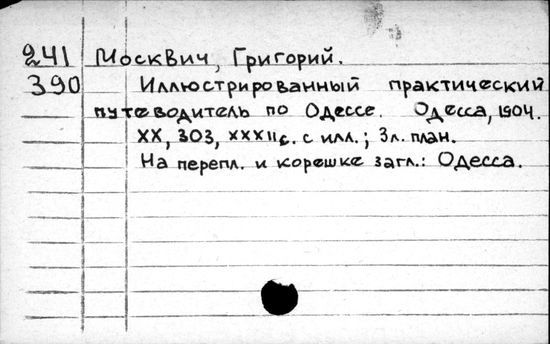 241 Москвич, Григорий.
390 Иллюстрированный практический
путеводитель по Одессе. Одесса, 1904.
XX, 303, XXXII с. с илл.; 3 л. план.
На перепл. и корешке загл.: Одесса.